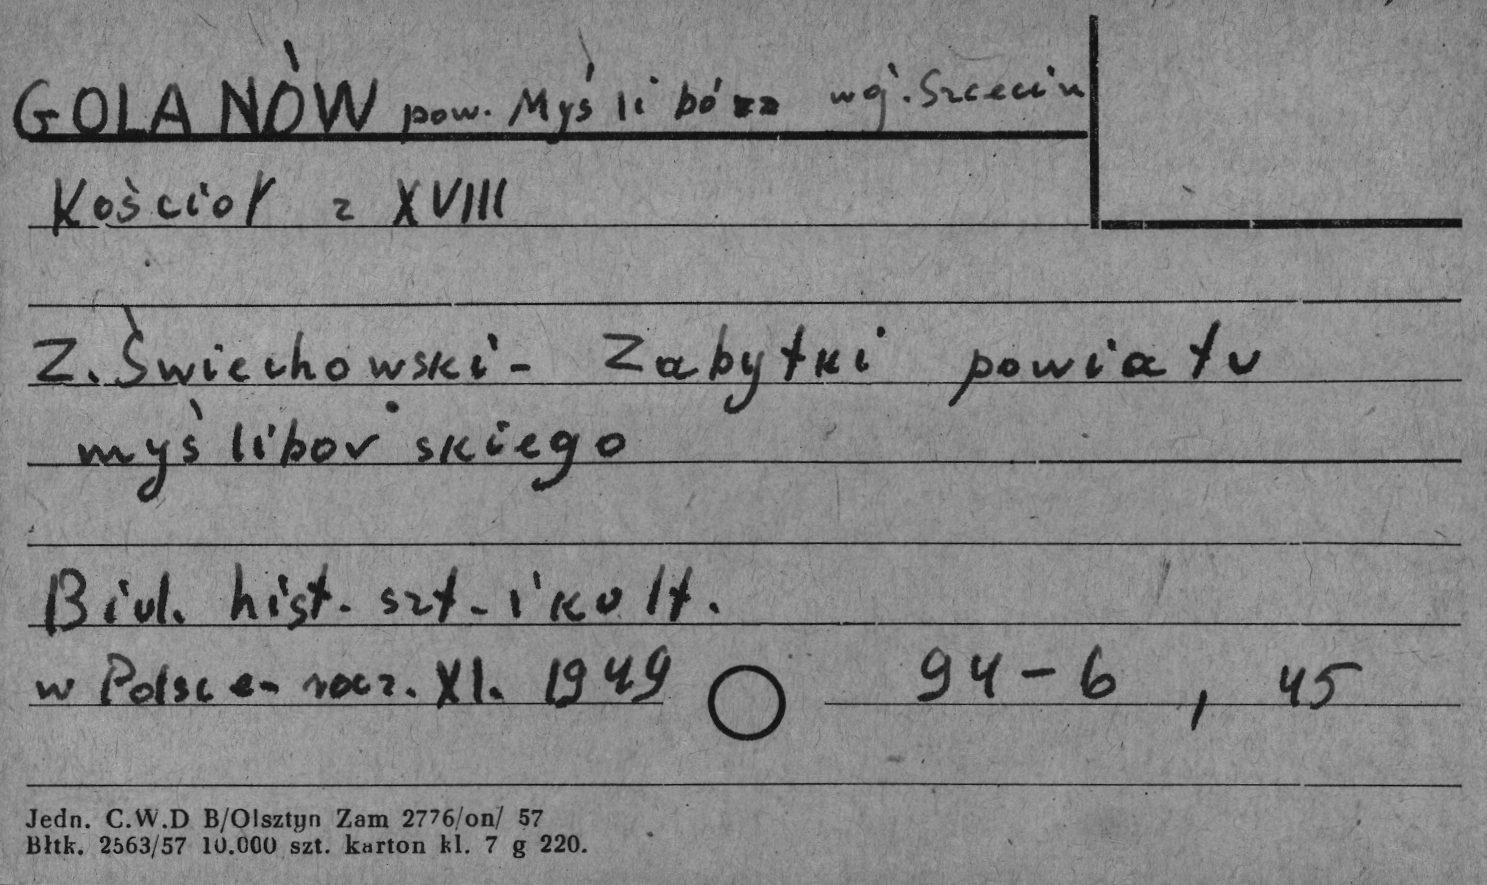 GOLANÓW pow. Myślibórz woj. Szczecin
Kościół z XVIII
Z. Świechowski - Zabytki powiatu
myśliborskiego
Biul. hist. szt. i kult.
w Polsce - rocz. XI. 1949 94-6, 45
Jedn. C.W.D B/Olsztyn Zam 2776/on/ 57
Błtk. 2563/57 10.000 szt. karton kl. 7 g 220.